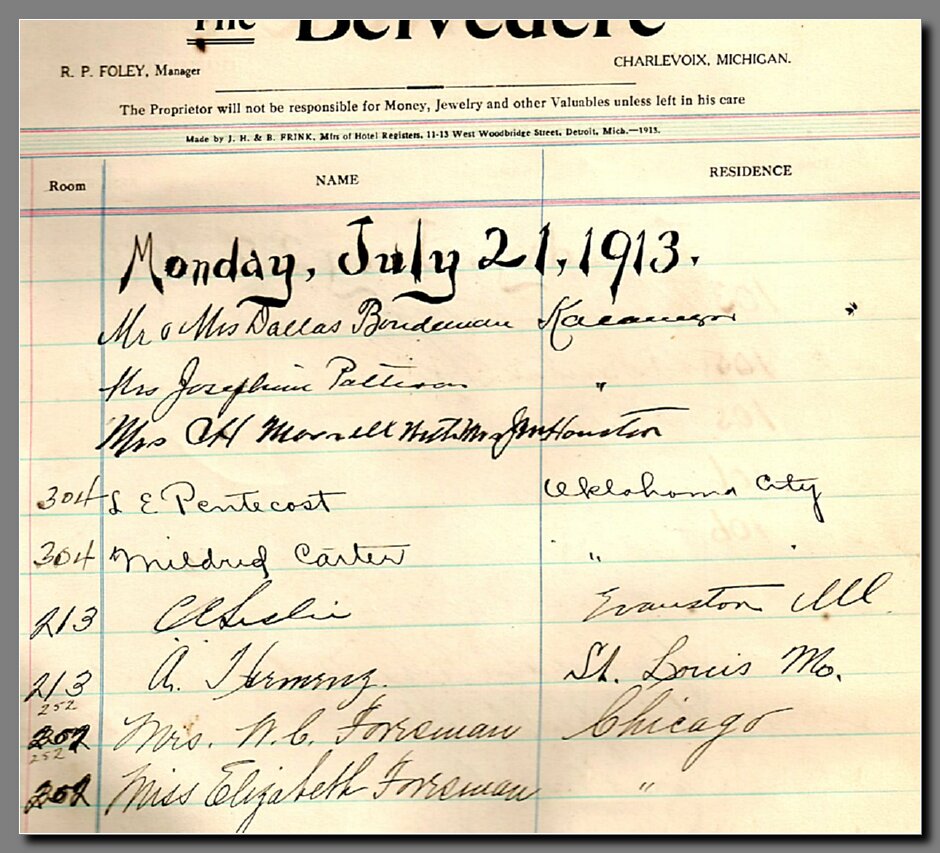 The Belvedere
R. P. FOLEY, Manager
CHARLEVOIX, MICHIGAN.
The Proprietor will not be responsible for Money, Jewelry and other Valuables unless left in his care
Made by J. H. & B. FRINK, Mfrs of Hotel Registers, 11-13 West Woodbridge Street, Detroit, Mich.—1913.
Room NAME RESIDENCE
Monday, July 21, 1913.
Mr & Mrs Dallas Boudeman "
Mrs Josephine Pattison "
Mrs CH Morrell Houston
304 L E Pentecost Oklahoma City
304 Mildred Carter "
213 C E Leslie Evanston Ill.
213 A. St. Louis Mo.
252
Mrs. W. C. Foresman Chicago
252
Miss Elizabeth Foresman "